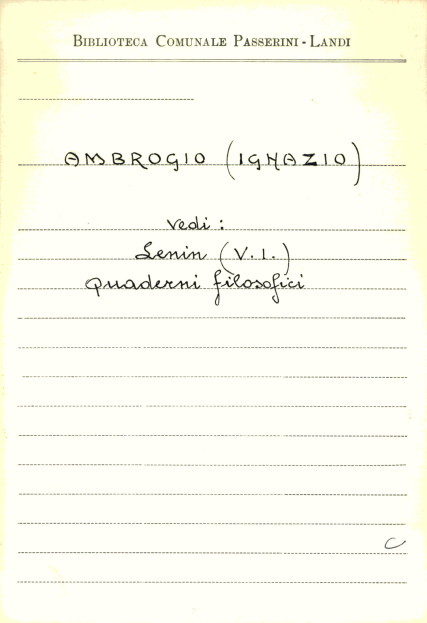 BIBLIOTECA COMUNALE PASSERINI - LANDI
AMBROGIO (IGNAZIO)
Vedi :
Lenin (V. I.)
Quaderni filosofici
C